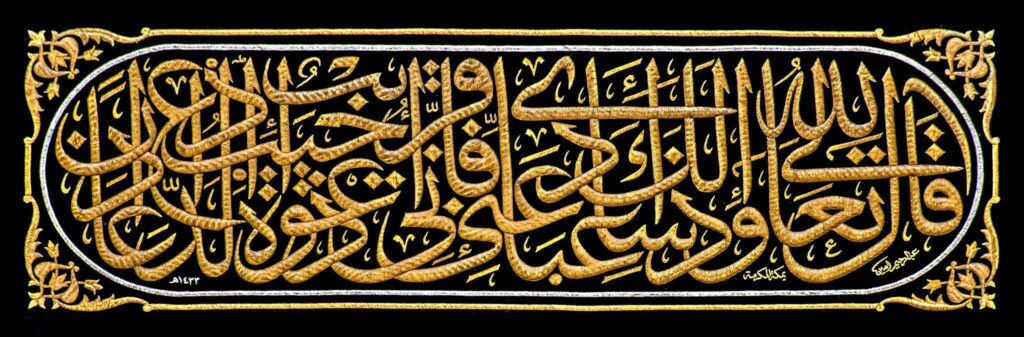 قال الله تعالى وإذا سألك عبادي عني فإني قريب أجيب دعوة الداع إذا دعان
بمكة المكرمة
١٤٣٣هـ